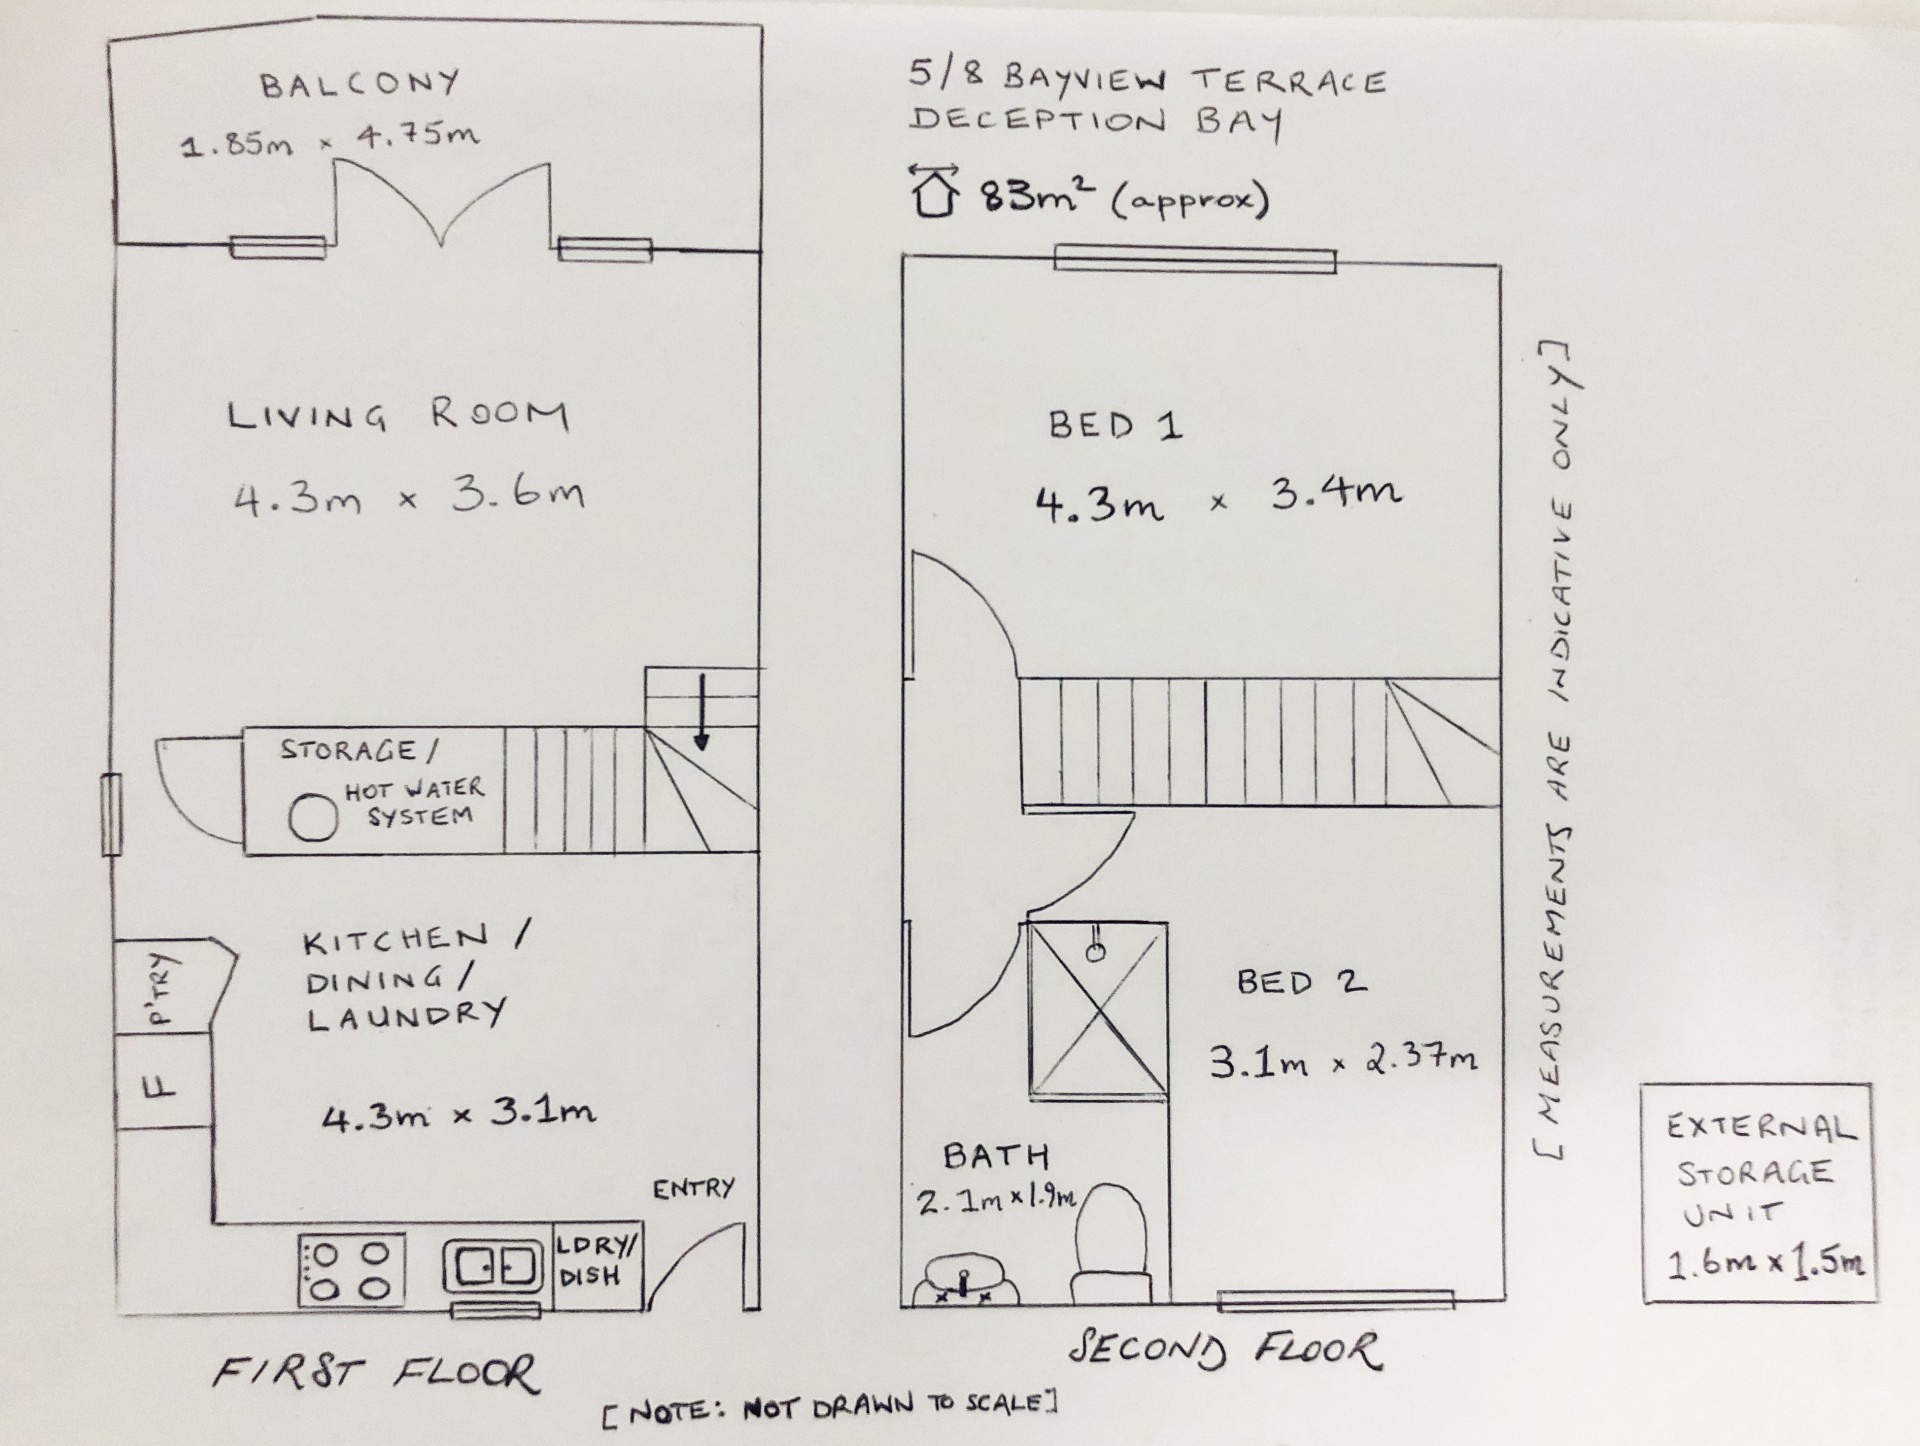 BALCONY
1.85m x 4.75m
5/8 BAYVIEW TERRACE
DECEPTION BAY
83m² (approx)
LIVING ROOM
4.3m x 3.6m
STORAGE/
HOT WATER
SYSTEM
KITCHEN /
DINING /
LAUNDRY
4.3m x 3.1m
P'TRY
F
ENTRY
LDRY/
DISH
FIRST FLOOR
BED 1
4.3m x 3.4m
BED 2
3.1m x 2.37m
BATH
2.1m x 1.9m
SECOND FLOOR
[MEASUREMENTS ARE INDICATIVE ONLY]
EXTERNAL
STORAGE
UNIT
1.6m x 1.5m
[NOTE: NOT DRAWN TO SCALE]